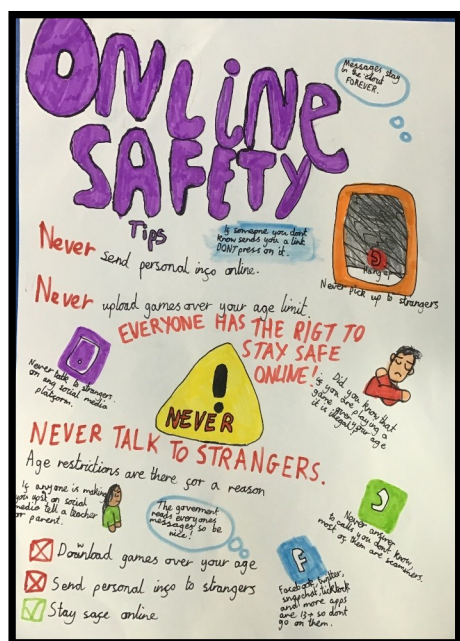 ONLINE
SAFETY
Tips
Messages stay
in the clout
FOREVER.
If someone you dont
know sends you a link
DONT press on it.
Hang up
Never pick up to strangers
Never send personal info online.
Never upload games over your age limit.
EVERYONE HAS THE RIGT TO
STAY SAFE
ONLINE!
Never talk to strangers
on any social media
platform.
!
NEVER
Did you know that
if you are playing a
game over your age
it is illegal?
NEVER TALK TO STRANGERS.
Age restrictions are ther for a reason
If anyone is making
you upset on social
media tell a teacher
or parent.
The goverment
reads everyones
messages so be
nice!
Never answer
to calls you don't know,
most of them are scammers.
Download games over your age
Send personal info to strangers
Stay safe online
f
Facebook, twitter,
snapchat, ticktock
and more apps
are 13+ so dont
go on them.